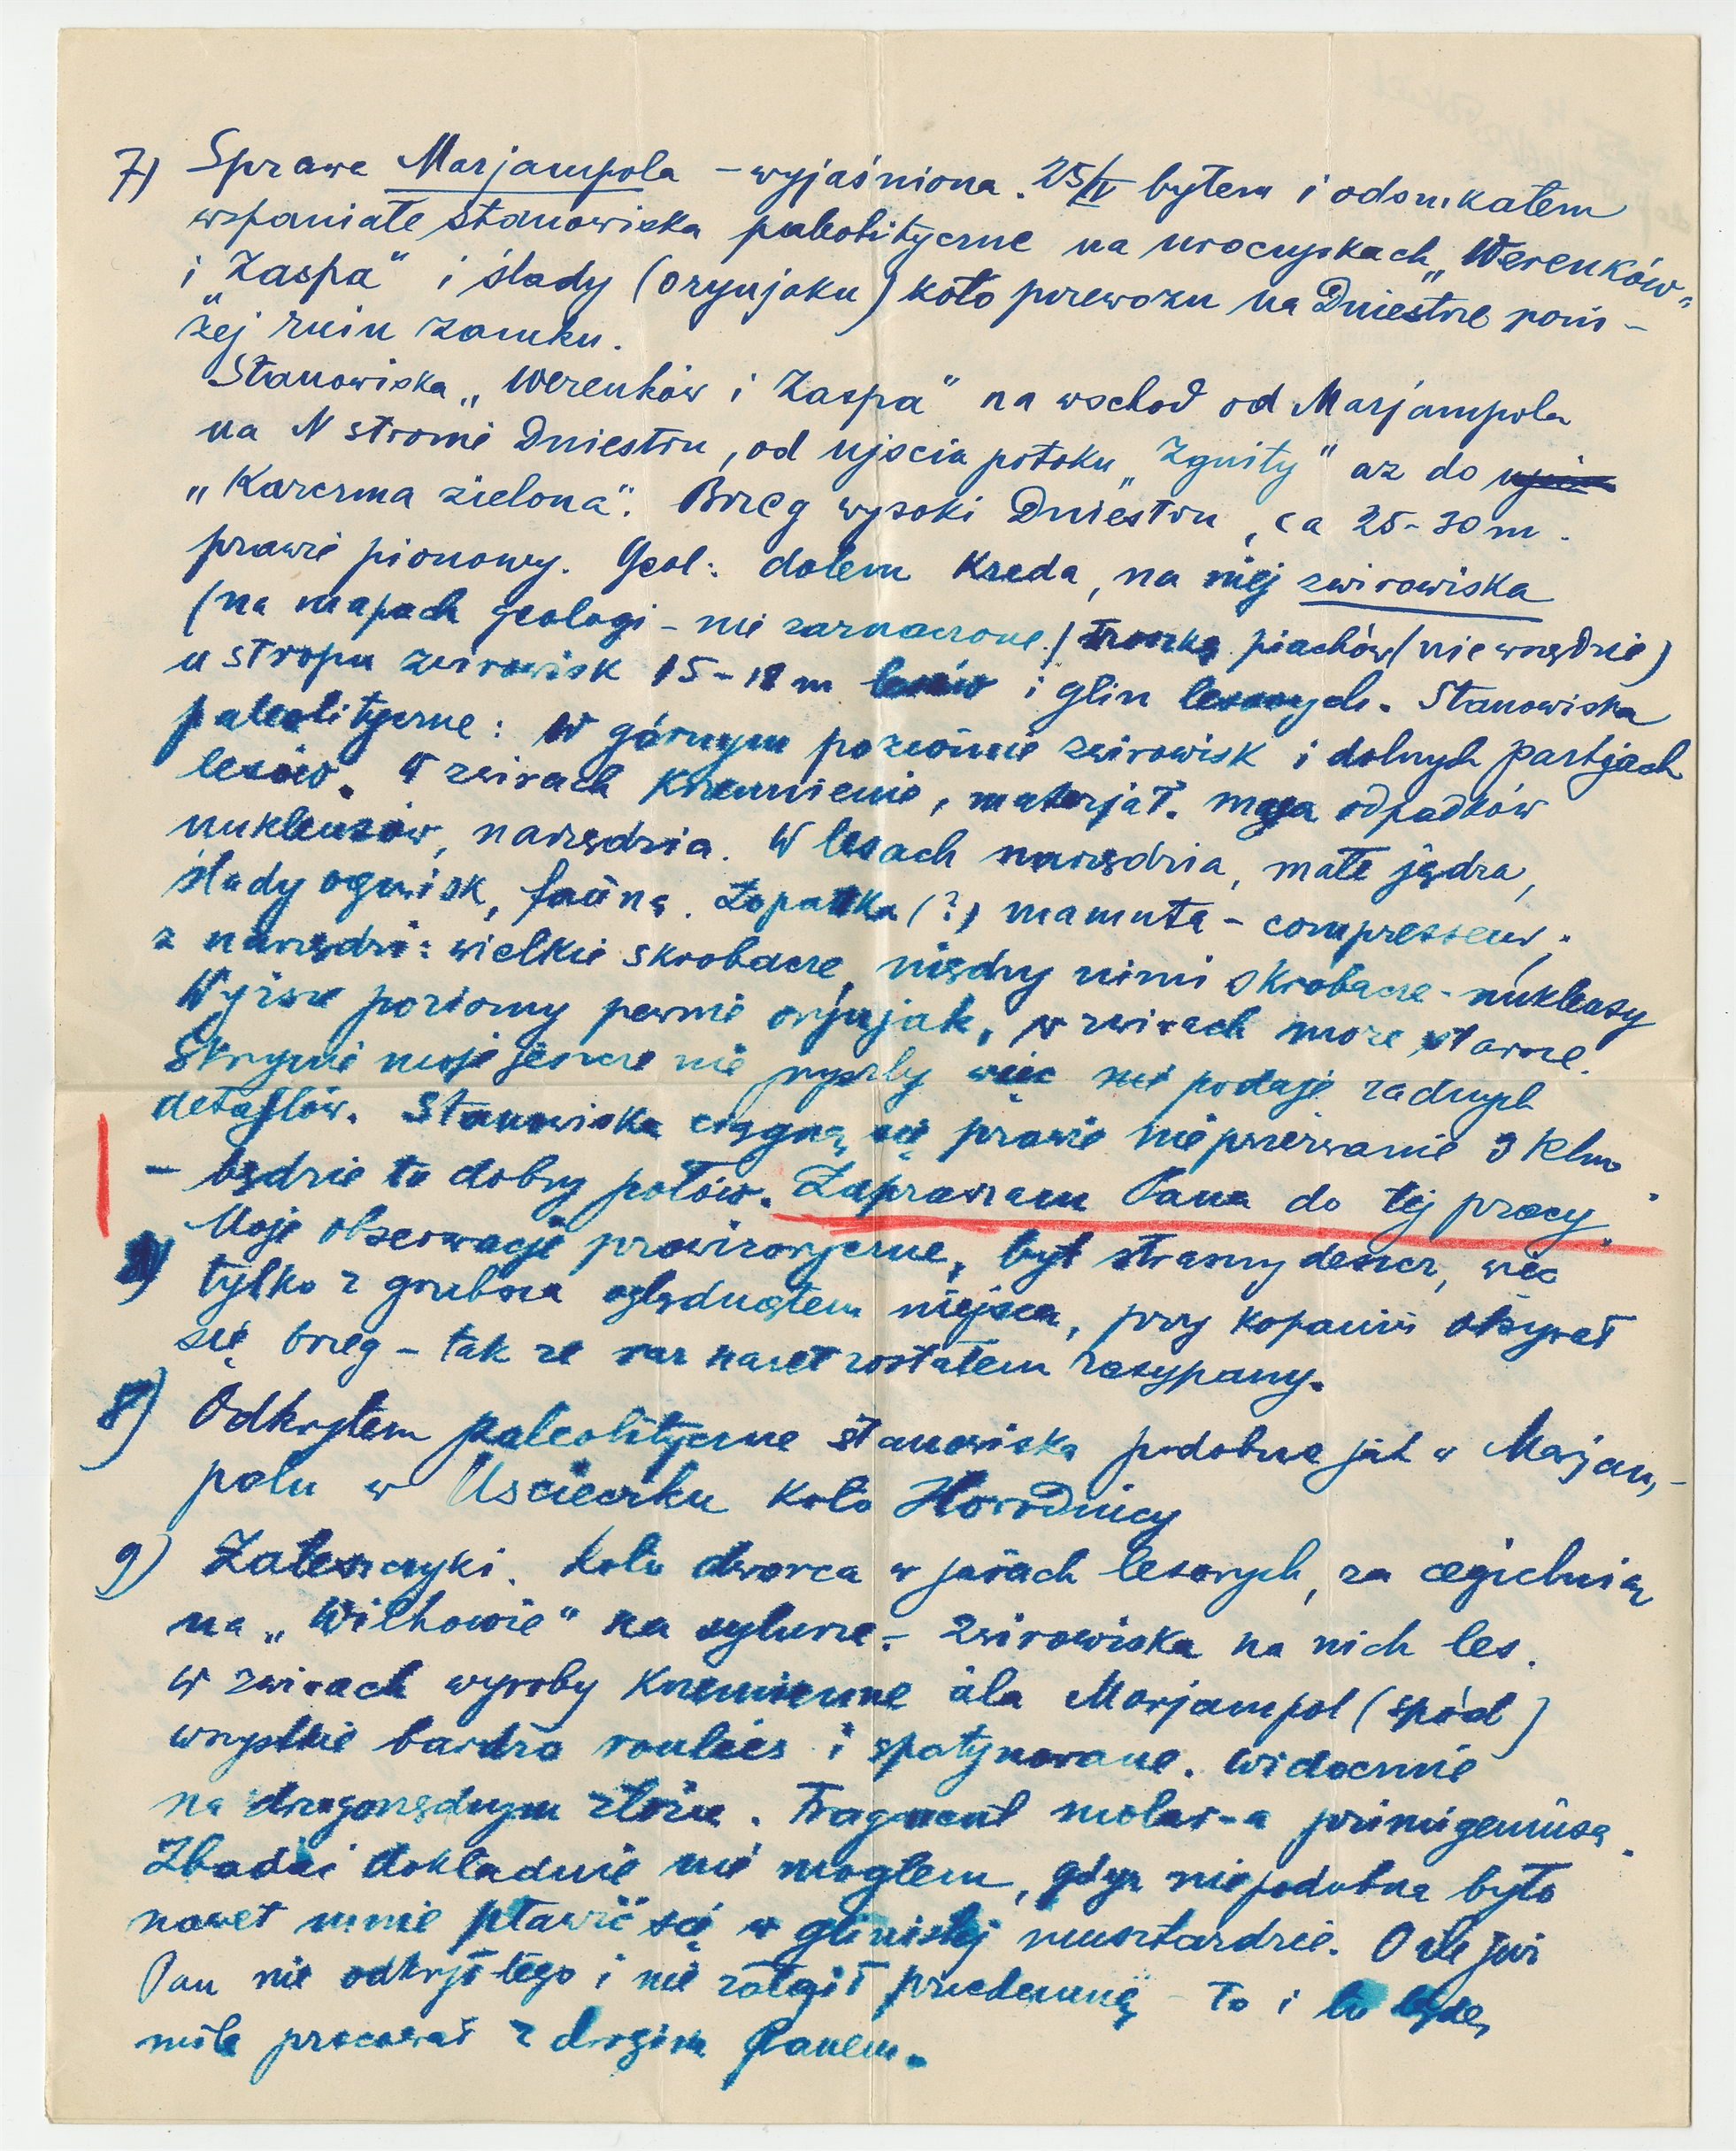 7) Sprawa Marjampola – wyjaśniona. 25/IV byłem i odszukałem
wspaniałe stanowiska paleolityczne na uroczyskach „Werenków"
i „Zaspa" i ślady (orynjaku) koło przewozu na Dniestrze poni-
żej ruin zamku.
Stanowiska „Werenków i Zaspa" na wschód od Marjampola
na N stronie Dniestru, od ujścia potoku „Zgniły" aż do
„Karczma zielona". Brzeg wysoki Dniestru, ca 25-30 m.
prawie pionowy. Geol: dołem Kreda, na niej zwirowiska
(na mapach geologi – nie zaznaczone) troszkę piachów (nie wszędzie)
u stropu zwirowisk 15-18 m lessów i glin lessowych. Stanowiska
paleolityczne: w górnym poziomie zwirowisk i dolnych partjach
lessów. W zwirach Krzemienie, materjał. masa odpadków
nukleusów, narzędzia. W lesach narzędzia, małe jądra,
ślady ognisk, fauna. Łopatka (?) mamuta – compresseur,
z narzędzi: wielkie skrobacze, między nimi skrobacze-nukleusy
Wyższe poziomy pewnie orynjak, w zwirach może starsze.
Skrzynie moje jeszcze nie przyszły więc nie podaję żadnych
detajlów. Stanowiska ciągną się prawie nieprzerwanie 3 Klm.
– będzie tu dobry połów. Zapraszam Pana do tej pracy.
Moje obserwacje prowizoryczne, był straszny deszcz, więc
tylko z grubsza oglądnąłem miejsca, przy kopaniu obsypał
się brzeg – tak że raz nawet zostałem zasypany.
8) Odkryłem paleolityczne stanowiska podobne jak w Marjam-
polu w Uścieczku koło Horodnicy
9) Zaleszczyki. Koło dworca w jarach lessowych, za cegielnią
na „Wilhowie" na sylurze – Zwirowiska na nich les.
W zwirach wyroby Krzemienne à la Marjampol (spód)
wszystkie bardzo roulées i spatynowane. Widocznie
na drugorzędnym złożu. Fragment molar-a primigeniusa.
Zbadać dokładnie nie mogłem, gdyż niepodobna było
nawet mnie pławić się w glinistej musztardzie. O ile już
Pan nie odkrył tego i nie zataił przedemną – to i tu będę
mile pracował z drogim Panem.